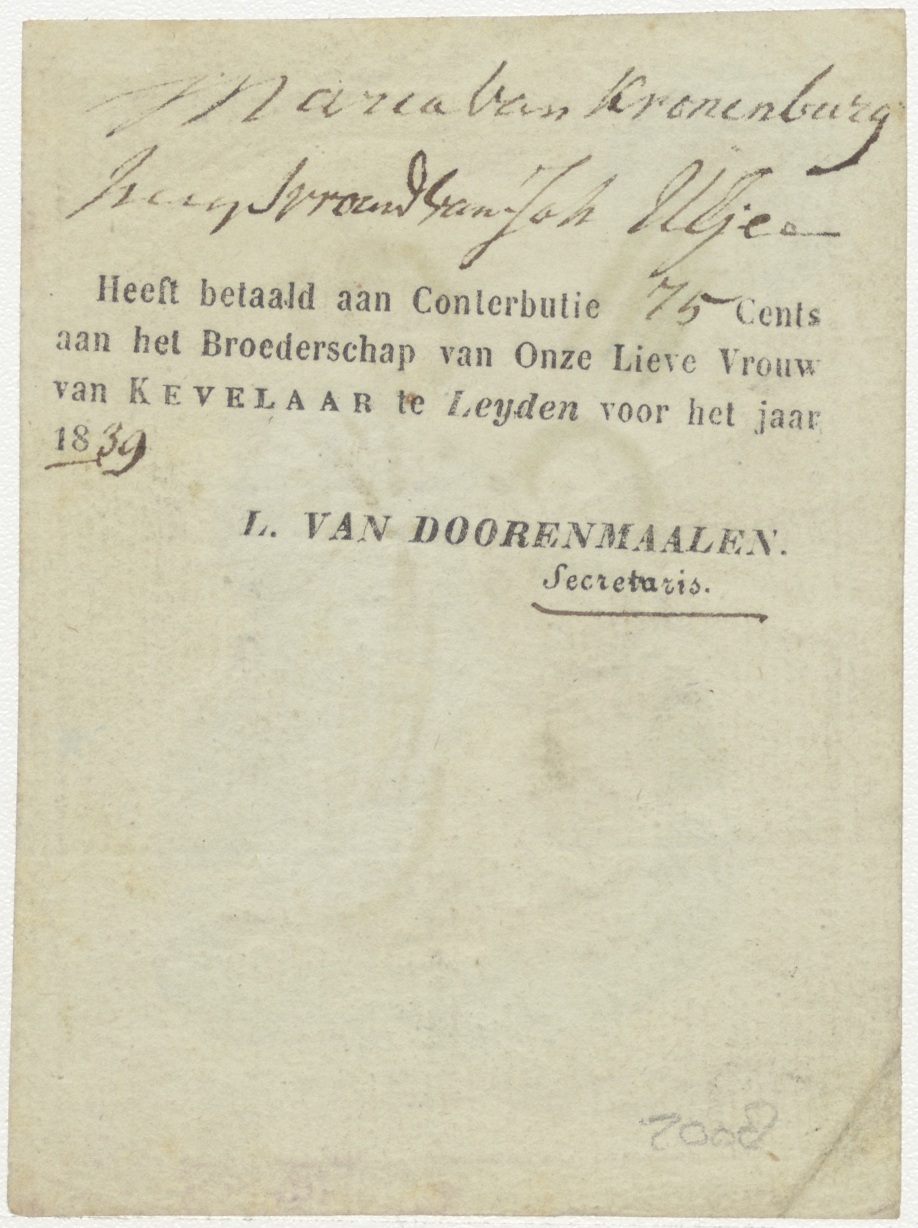 Maria van Kronenburg
huysvrouw van Joh
Heeft betaald aan Conterbutie 75 Cents
aan het Broederschap van Onze Lieve Vrouw
van KEVELAAR te Leyden voor het jaar
1839
L. VAN DOORENMAALEN.
Secretaris.